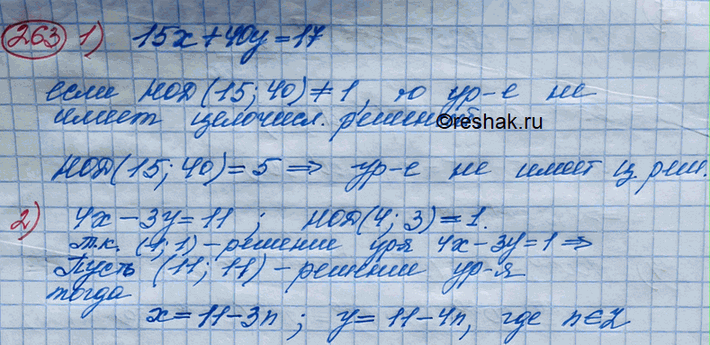 263 1) 15x+40y=17
если НОД(15;40)≠1, то ур-е не
имеет целочисл. решений
©reshak.ru
НОД(15;40)=5 ⇒ ур-е не имеет ц. реш.
2) 4x-3y=11 ; НОД(4;3)=1.
т.к. (1;1)-решение ур-я 4x-3y=1 ⇒
Пусть (11;11)-решение ур-я
тогда
x=11-3n ; y=11-4n, где n∈Z